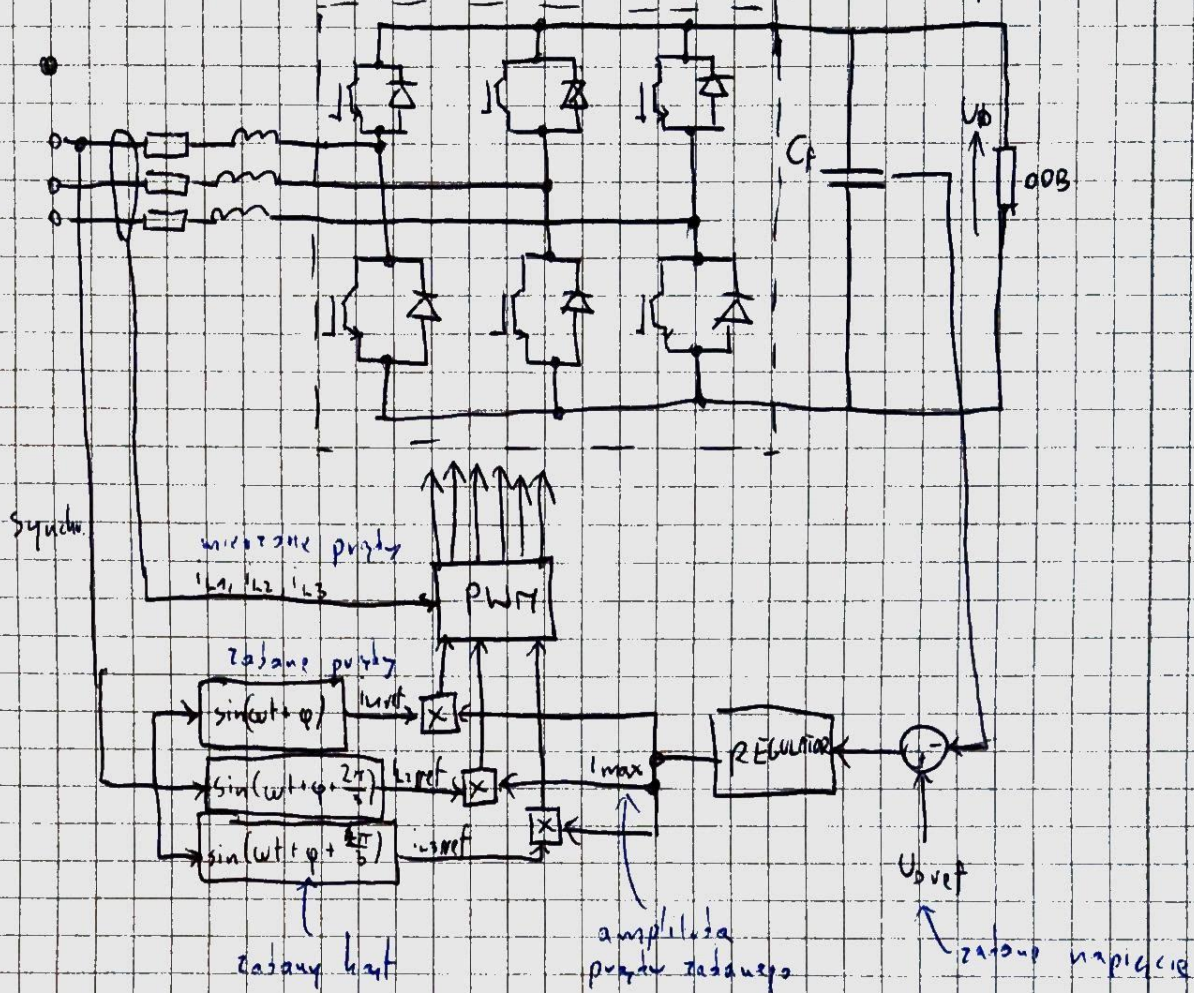 C_f
U_D
ODB
Synchr.
mierzone prądy
i_L1, i_L2 i_L3
PWM
zadane prądy
sin(ωt + φ)
i_L1ref
X
sin(ωt + φ + 2π/3)
i_L2ref
X
i_max
REGULATOR
-
+
sin(ωt + φ + 4π/3)
i_L3ref
X
U_Dref
zadany kąt
amplituda
prądu zadanego
zadane napięcie